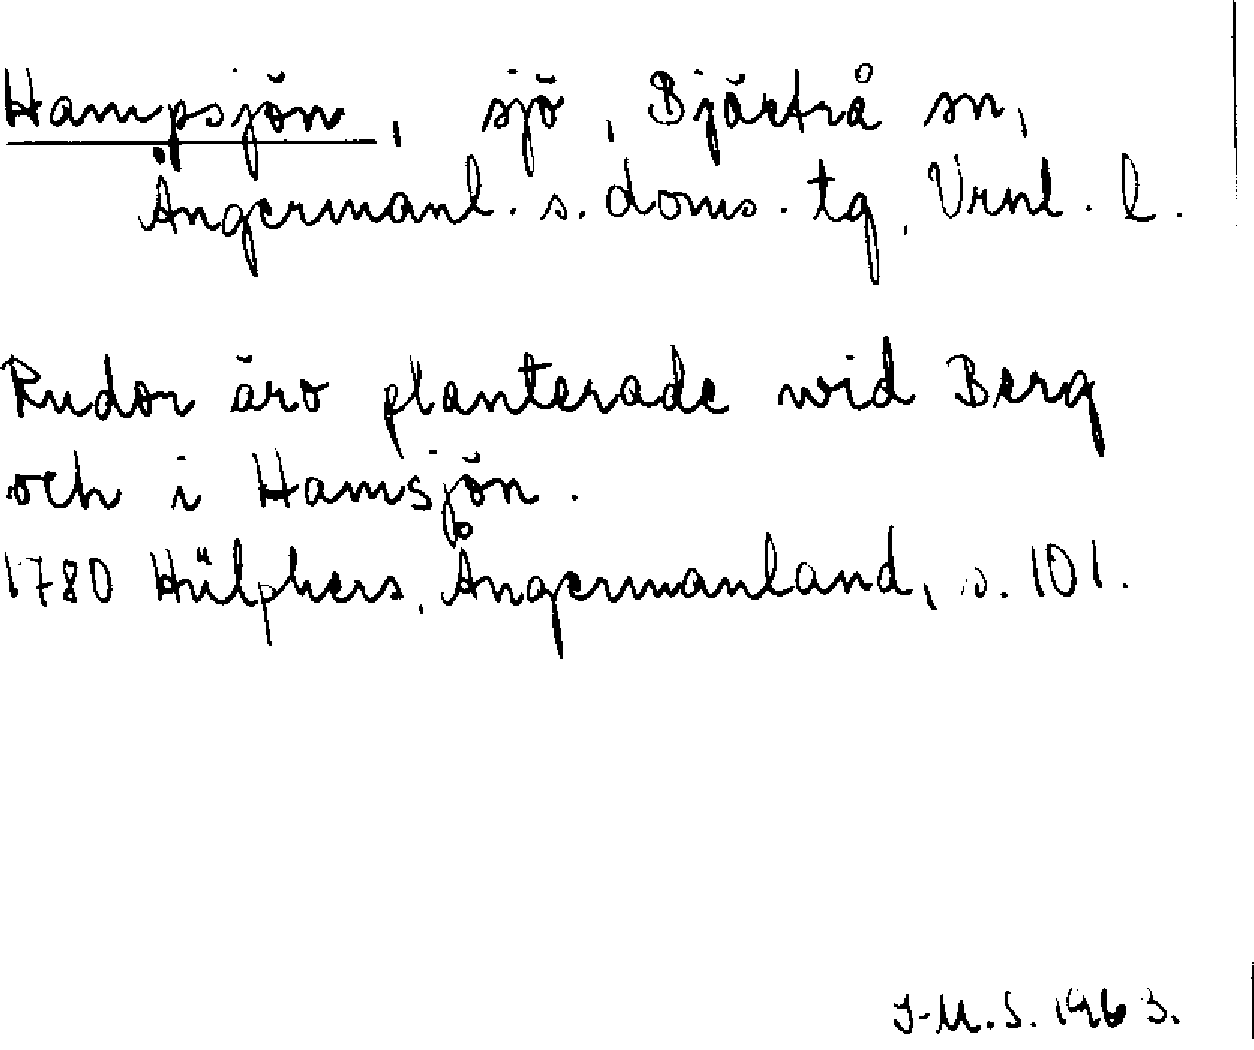 Hampsjön, sjö, Bjärtrå sn,
Ångermanl. s. doms. tg, Vrnl. l.
Rudor äro planterade wid Berg
och i Hamsjön.
1780 Hülphers, Ångermanland, s. 101.
J-M.S. 1963.